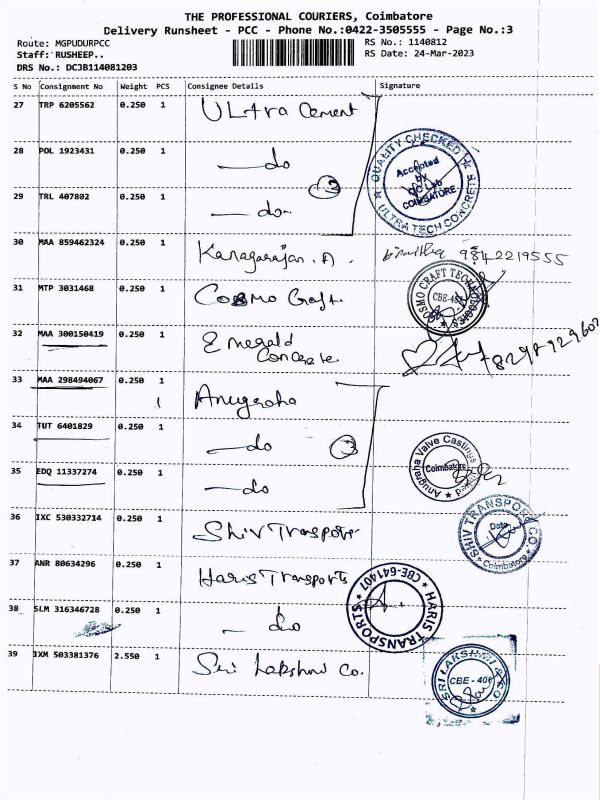 THE PROFESSIONAL COURIERS, Coimbatore
Delivery Runsheet - PCC - Phone No.:0422-3505555 - Page No.:3
Route: MGPUDURPCC
RS No.: 1140812
Staff: RUSHEEP..
RS Date: 24-Mar-2023
DRS No.: DCJB114081203
S No Consignment No Weight PCS Consignee Details Signature
27 TRP 6205562 0.250 1 Ultra Cement
28 POL 1923431 0.250 1 —do
QUALITY CHECKED
Accepted
by
QC Lab
COIMBATORE
ULTRA TECH CONCRETE
3
29 TRL 407802 0.250 1 —do-
30 MAA 859462324 0.250 1 Kanagarajan .A. 9842219555
31 MTP 3031468 0.250 1 Cosmo Craft.
COSMO CRAFT
32 MAA 300150419 0.250 1 Emerald
Concrete
33 MAA 298494067 0.250 1 Anugraha
1
34 TUT 6401829 0.250 1 —do
3
Anugraha Valve Castings
Coimbatore
35 EDQ 11337274 0.250 1 —do
36 IXC 530332714 0.250 1 Shiv Transports
SHIV TRANSPORT CO.
Date
Coimbatore
37 ANR 80634296 0.250 1 Haris Transports
CBE-641407
HARIS TRANSPORTS
38 SLM 316346728 0.250 1 — do
39 IXM 503381376 2.550 1 Sri Lakshmi Co.
SRI LAKSHMI & CO
CBE - 406